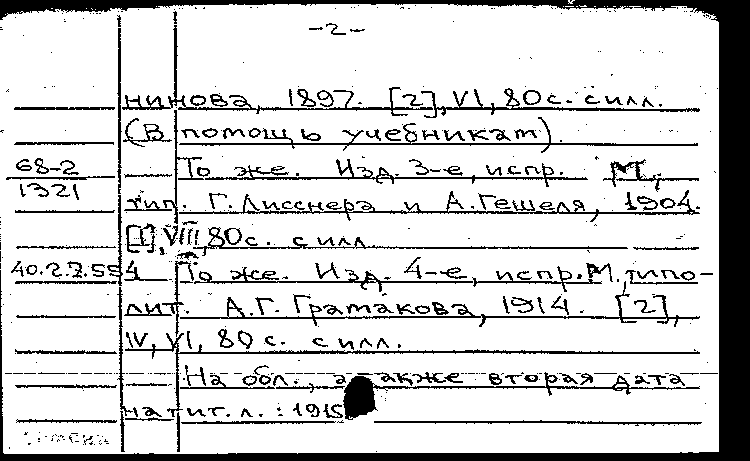 -2-
нинова, 1897. [2], VI, 80 с. с илл.
(В помощь учебникам)
68-2 То же. Изд. 3-е, испр. М.,
1321
тип. Г. Лисснера и А. Гешеля, 1904.
[1], VIII, 80 с. с илл.
40.2.7.554 То же. Изд. 4-е, испр. М., типо-
лит. А.Г. Гратакова, 1914. [2],
IV, VI, 80 с. с илл.
На обл., а также вторая дата
на тит. л.: 1915